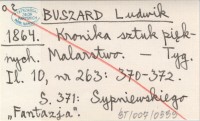 a2 BUSZARD Ludwik
1864. Kronika sztuk pięk-
nych. Malarstwo. - Tyg.
Il. 10, nr 263: 370-372.
S. 371: Sypniewskiego
„Fantazja".
ST/007/0559